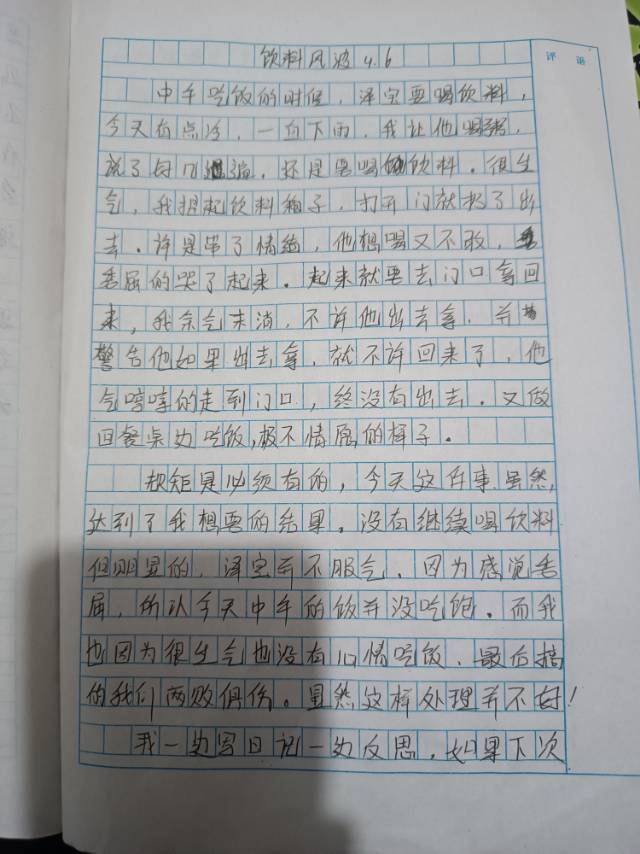 评 语
饮料风波 4.6
中午吃饭的时候，泽宝要喝饮料，
今天有点冷，一直下雨，我让他喝粥，
说了好几遍，还是要喝饮料。很生
气，我提起饮料箱子，打开门就扔了出
去。许是带了情绪，他想喝又不敢，
委屈的哭了起来。起来就要去门口拿回
来，我余气未消，不许他出去拿，并
警告他如果出去拿，就不许回来了，他
气哼哼的走到门口，终没有出去。又做
回餐桌边吃饭，极不情愿的样子。
规矩是必须有的，今天这件事虽然，
达到了我想要的结果。没有继续喝饮料
但明显的，泽宝并不服气，因为感觉委
屈，所以今天中午的饭并没吃饱。而我
也因为很生气也没有心情吃饭，最后搞
的我们两败俱伤。显然这样处理并不好！
我一边写日记一边反思，如果下次